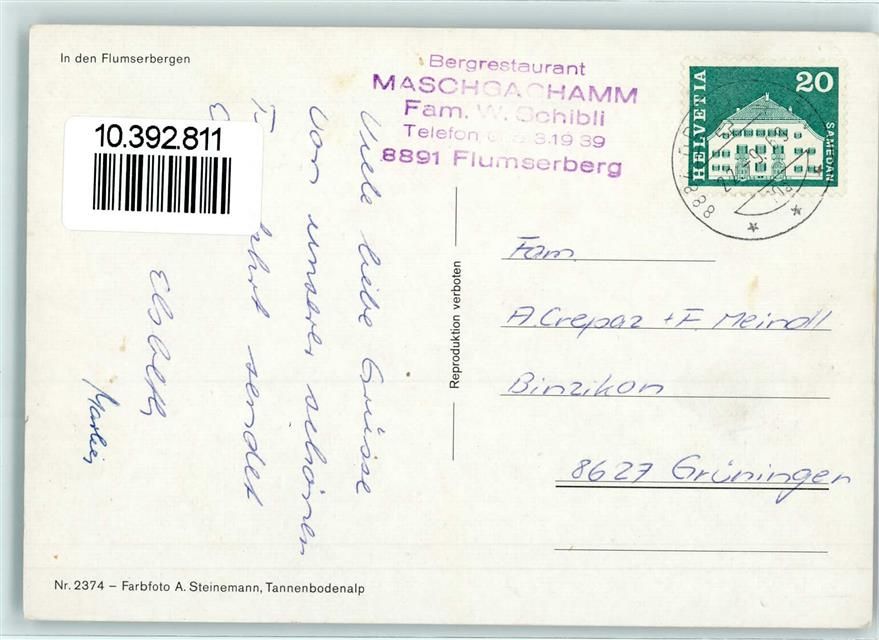 In den Flumserbergen
10.392.811
Bergrestaurant
MASCHGACHAMM
Fam. W. Schibli
Telefon 3 19 39
8891 Flumserberg
HELVETIA
20
SAMEDAN
Viele liebe Grüsse
von unserer schönen
sendet
Elsbeth
Marlies
Reproduktion verboten
Fam.
A. Crepaz + F. Meindl
Binzikon
8627 Grüningen
Nr. 2374 – Farbfoto A. Steinemann, Tannenbodenalp